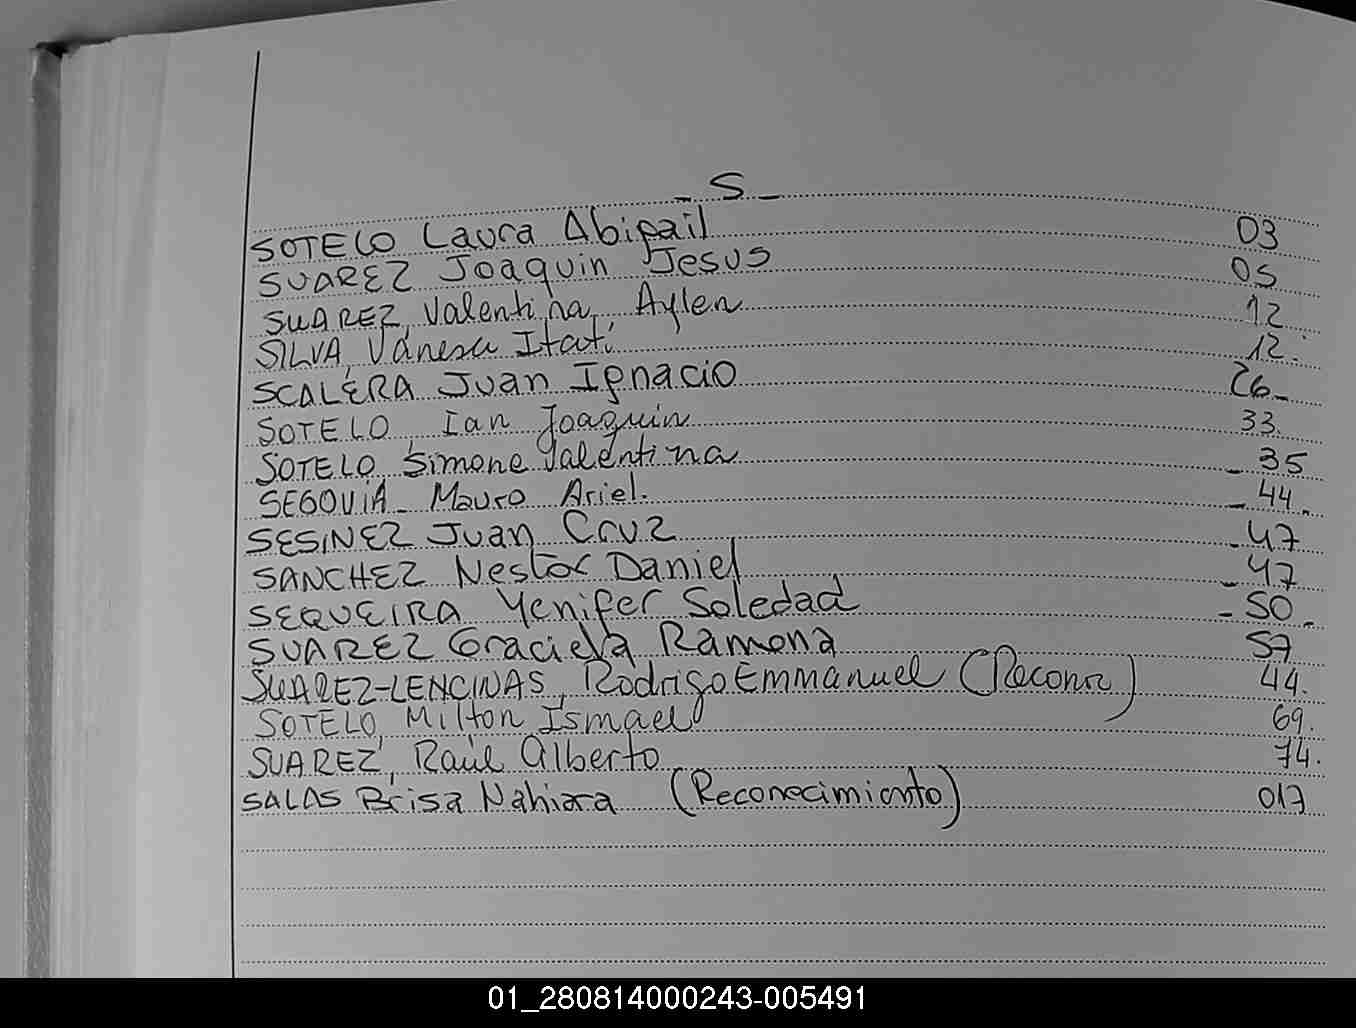 - S -
SOTELO Laura Abigail 03
SUAREZ Joaquin Jesus 05
SUAREZ, Valentina, Aylen 12
SILVA, Vanesa Itatí 12.
SCALERA Juan Ignacio 26-
SOTELO, Ian Joaquin 33.
SOTELO Simone Valentina - 35
SEGOVIA - Mauro Ariel. - 44.
SESINEZ Juan Cruz - 47
SANCHEZ Nestor Daniel - 47
SEQUEIRA Yenifer Soledad - 50.
SUAREZ Graciela Ramona 57
SUAREZ-LENCINAS, Rodrigo Emmanuel (Reconoc) 44.
SOTELO, Milton Ismael 69.
SUAREZ, Raúl Alberto 74.
SALAS Brisa Nahiara (Reconocimiento) 017
01_280814000243-005491